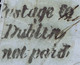 ostage to
Dublin
not paid.